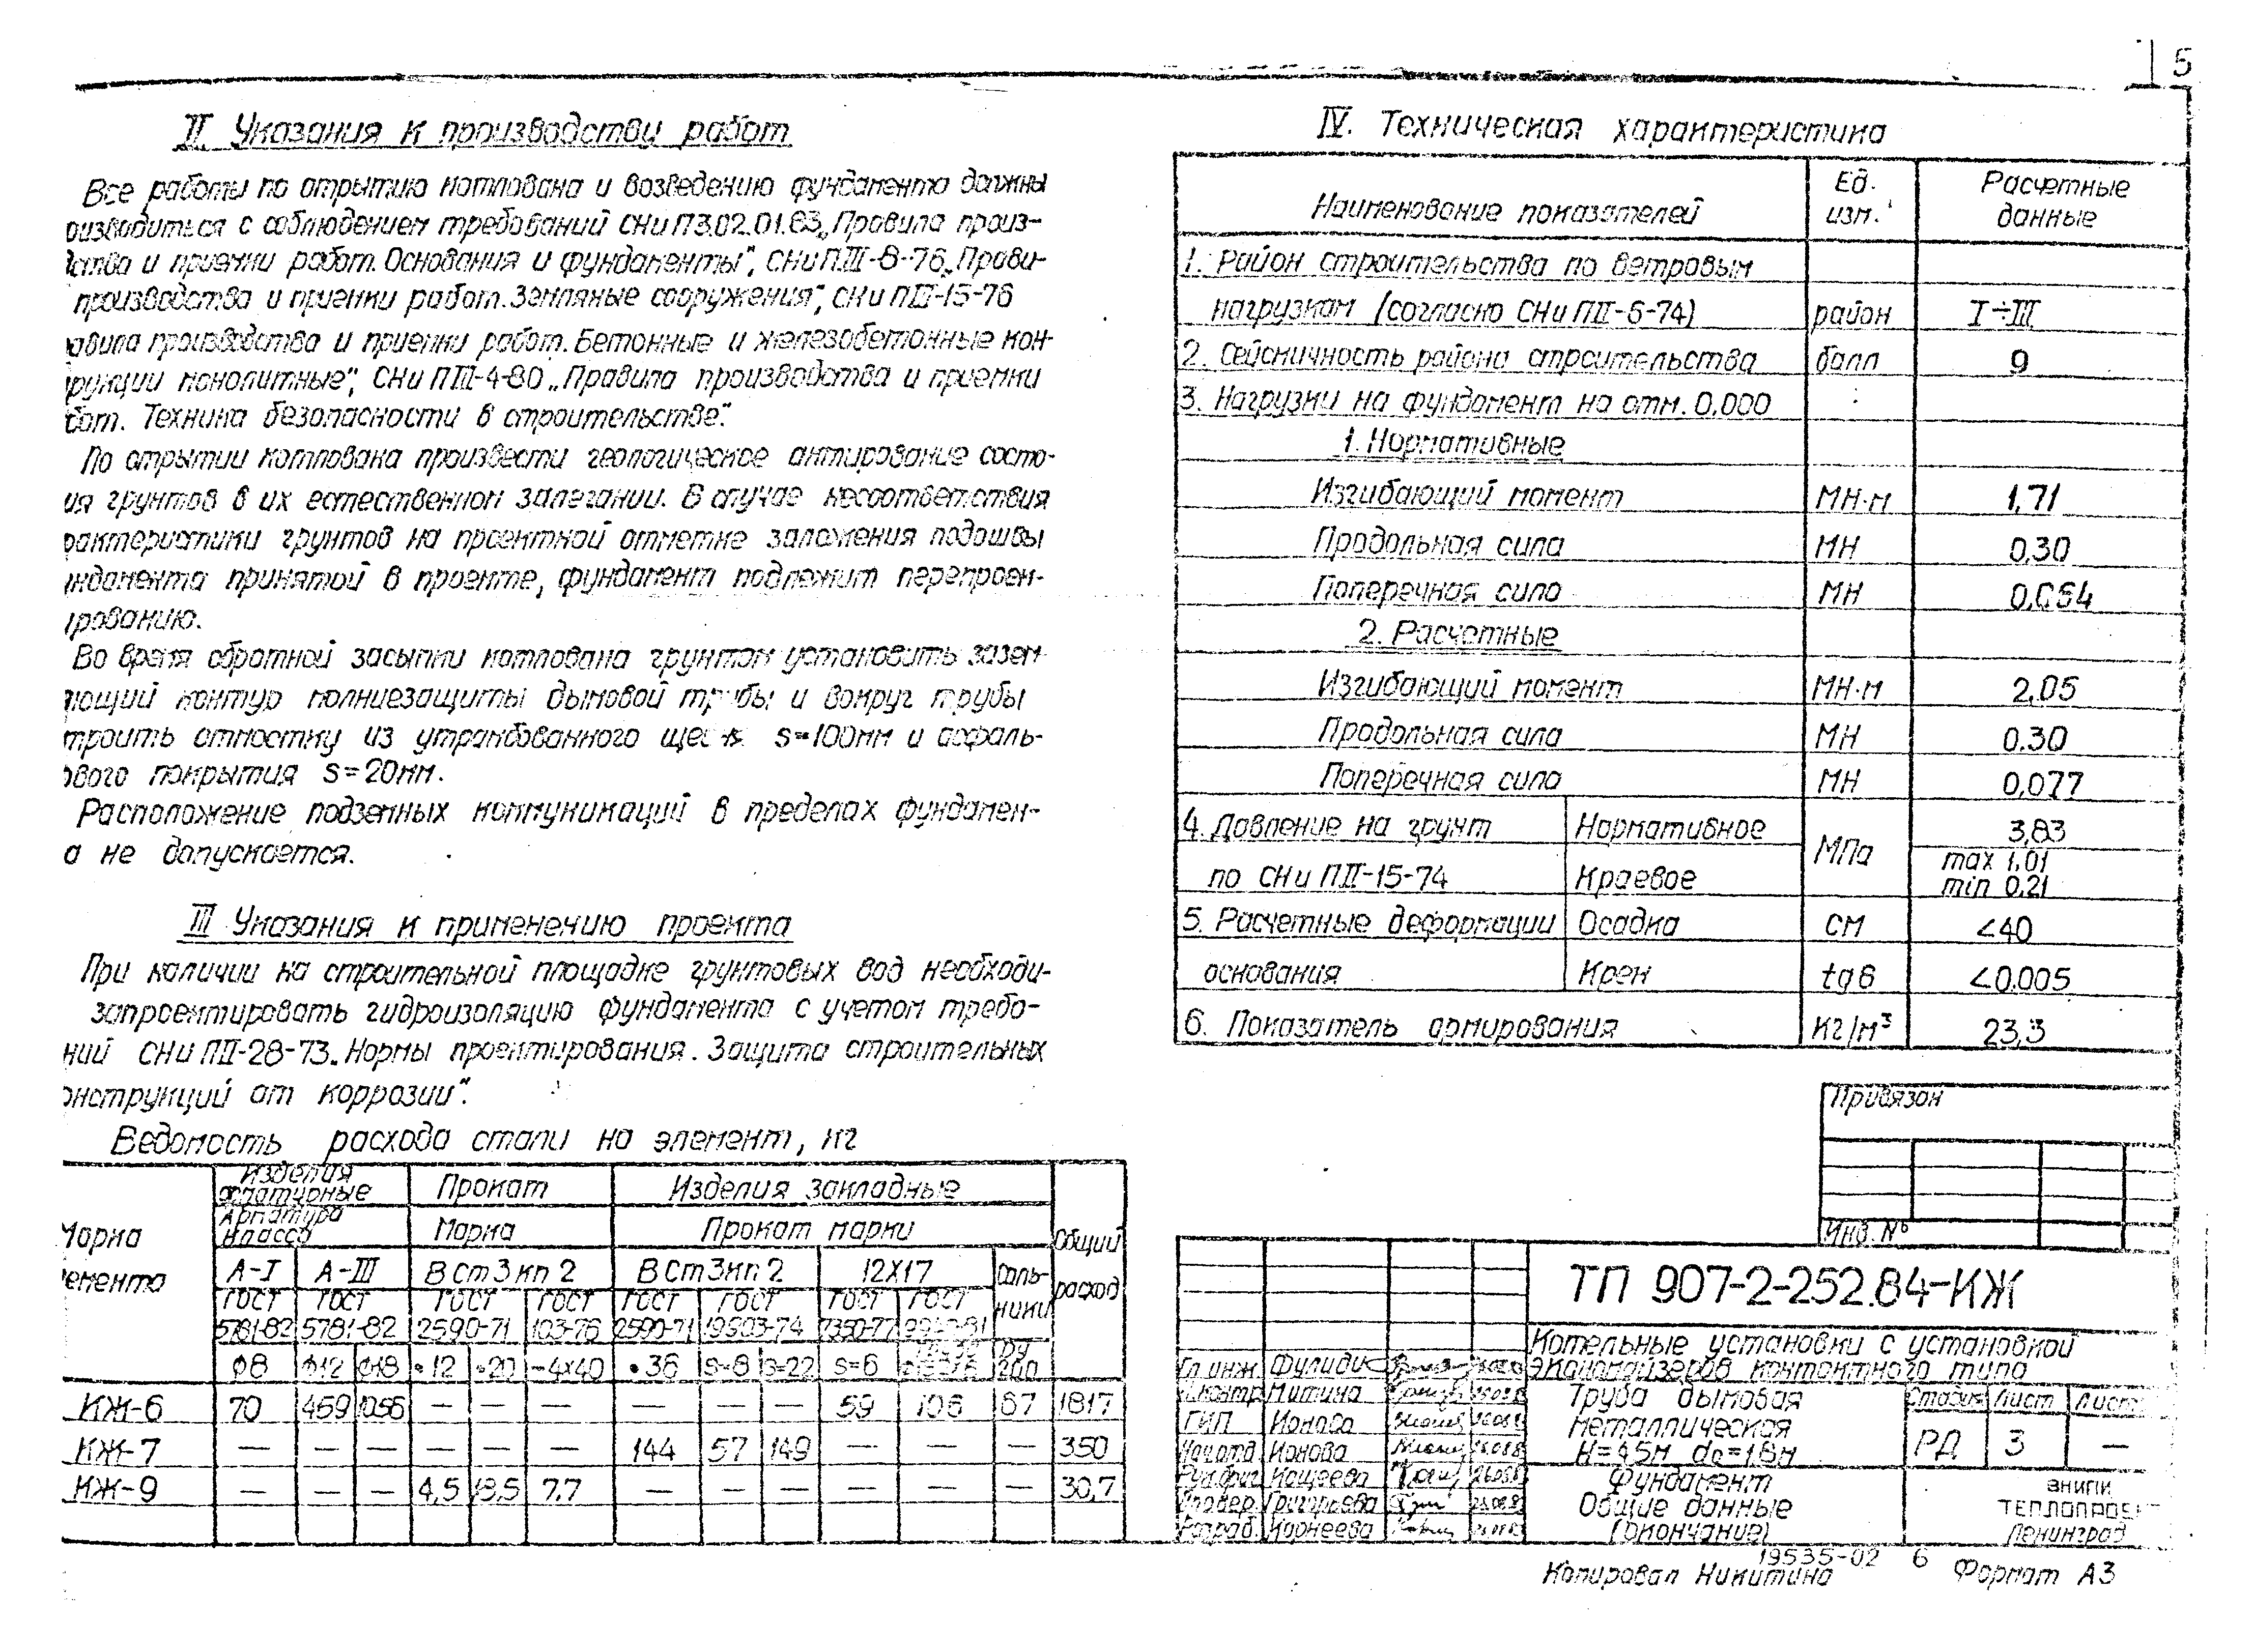 5
II Указания к производству работ
Все работы по открытию котлована и возведению фундамента должны
оизводиться с соблюдением требований СНиП 3.02.01.83 „Правила произ-
дства и приемки работ. Основания и фундаменты", СНиП.III-8-76 „Прави-
производства и приемки работ. Земляные сооружения", СНиП III-15-76
авила производства и приемки работ. Бетонные и железобетонные кон-
рукции монолитные", СНиП III-4-80 „Правила производства и приемки
бот. Техника безопасности в строительстве".
По открытии котлована произвести геологическое актирование состо-
ия грунтов в их естественном залегании. В случае несоответствия
рактеристики грунтов на проектной отметке заложения подошвы
ндамента принятой в проекте, фундамент подлежит перепроек-
ированию.
Во время обратной засыпки котлована грунтом установить зазем-
яющий контур молниезащиты дымовой трубы и вокруг трубы
троить отмостку из утрамбованного s=100мм и асфаль-
ового покрытия s=20мм.
Расположение подземных коммуникаций в пределах фундамен-
а не допускается.
III Указания к применению проекта
При наличии на строительной площадке грунтовых вод необходи-
запроектировать гидроизоляцию фундамента с учетом требо-
ний СНиП II-28-73 „Нормы проектирования. Защита строительных
онструкций от коррозии".
Ведомость расхода стали на элемент, кг
Марка
емента
Изделия
арматурные
Прокат
Изделия закладные
Общий
расход
Арматура
класса
Марка
Прокат марки
А-I А-III ВСт3кп2 ВСт3кп2 12Х17 Саль-
ники
ГОСТ ГОСТ ГОСТ ГОСТ ГОСТ ГОСТ ГОСТ ГОСТ
5781-82 5781-82 2590-71 103-76 2590-71 19903-74 7350-77
ф8 ф12 ф18 •12 •20 −4х40 •36 s=8 s=22 s=6 Ду 200
КЖ-6 70 459 1056 — — — — — — 59 106 67 1817
КЖ-7 — — — — — — 144 57 149 — — — 350
КЖ-9 — — — 4,5 18,5 7,7 — — — — — — 30,7
IV. Техническая характеристика
Наименование показателей Ед.
изм. Расчетные
данные
1. Район строительства по ветровым
нагрузкам (согласно СНиП II-6-74) район I÷III
2. Сейсмичность района строительства балл 9
3. Нагрузки на фундамент на отм. 0,000
1. Нормативные
Изгибающий момент МН·м 1,71
Продольная сила МН 0,30
Поперечная сила МН 0,064
2. Расчетные
Изгибающий момент МН·м 2,05
Продольная сила МН 0.30
Поперечная сила МН 0,077
4. Давление на грунт Нормативное МПа 3,83
по СНиП II-15-74 Краевое max 1,01
min 0,21
5. Расчетные деформации Осадка см <40
основания Крен tgθ <0.005
6. Показатель армирования кг/м³ 23,3
Привязан
Инв. №
ТП 907-2-252.84-КЖ
Котельные установки с установкой
экономайзеров контактного типа
Гл.инж. Фулиди
Н.контр. Митина
ГИП Ионова
Нач.отд. Ионова
Рук.бриг. Кощеева
Провер. Григорьева
Разраб. Корнеева
Труба дымовая
металлическая
Н=45м d₀=1,8м
Стадия Лист Лист
РД 3 —
Фундамент
Общие данные
(окончание)
ВНИПИ
ТЕПЛОПРОЕКТ
Ленинград
19535-02 6
Копировал Никитина Формат А3